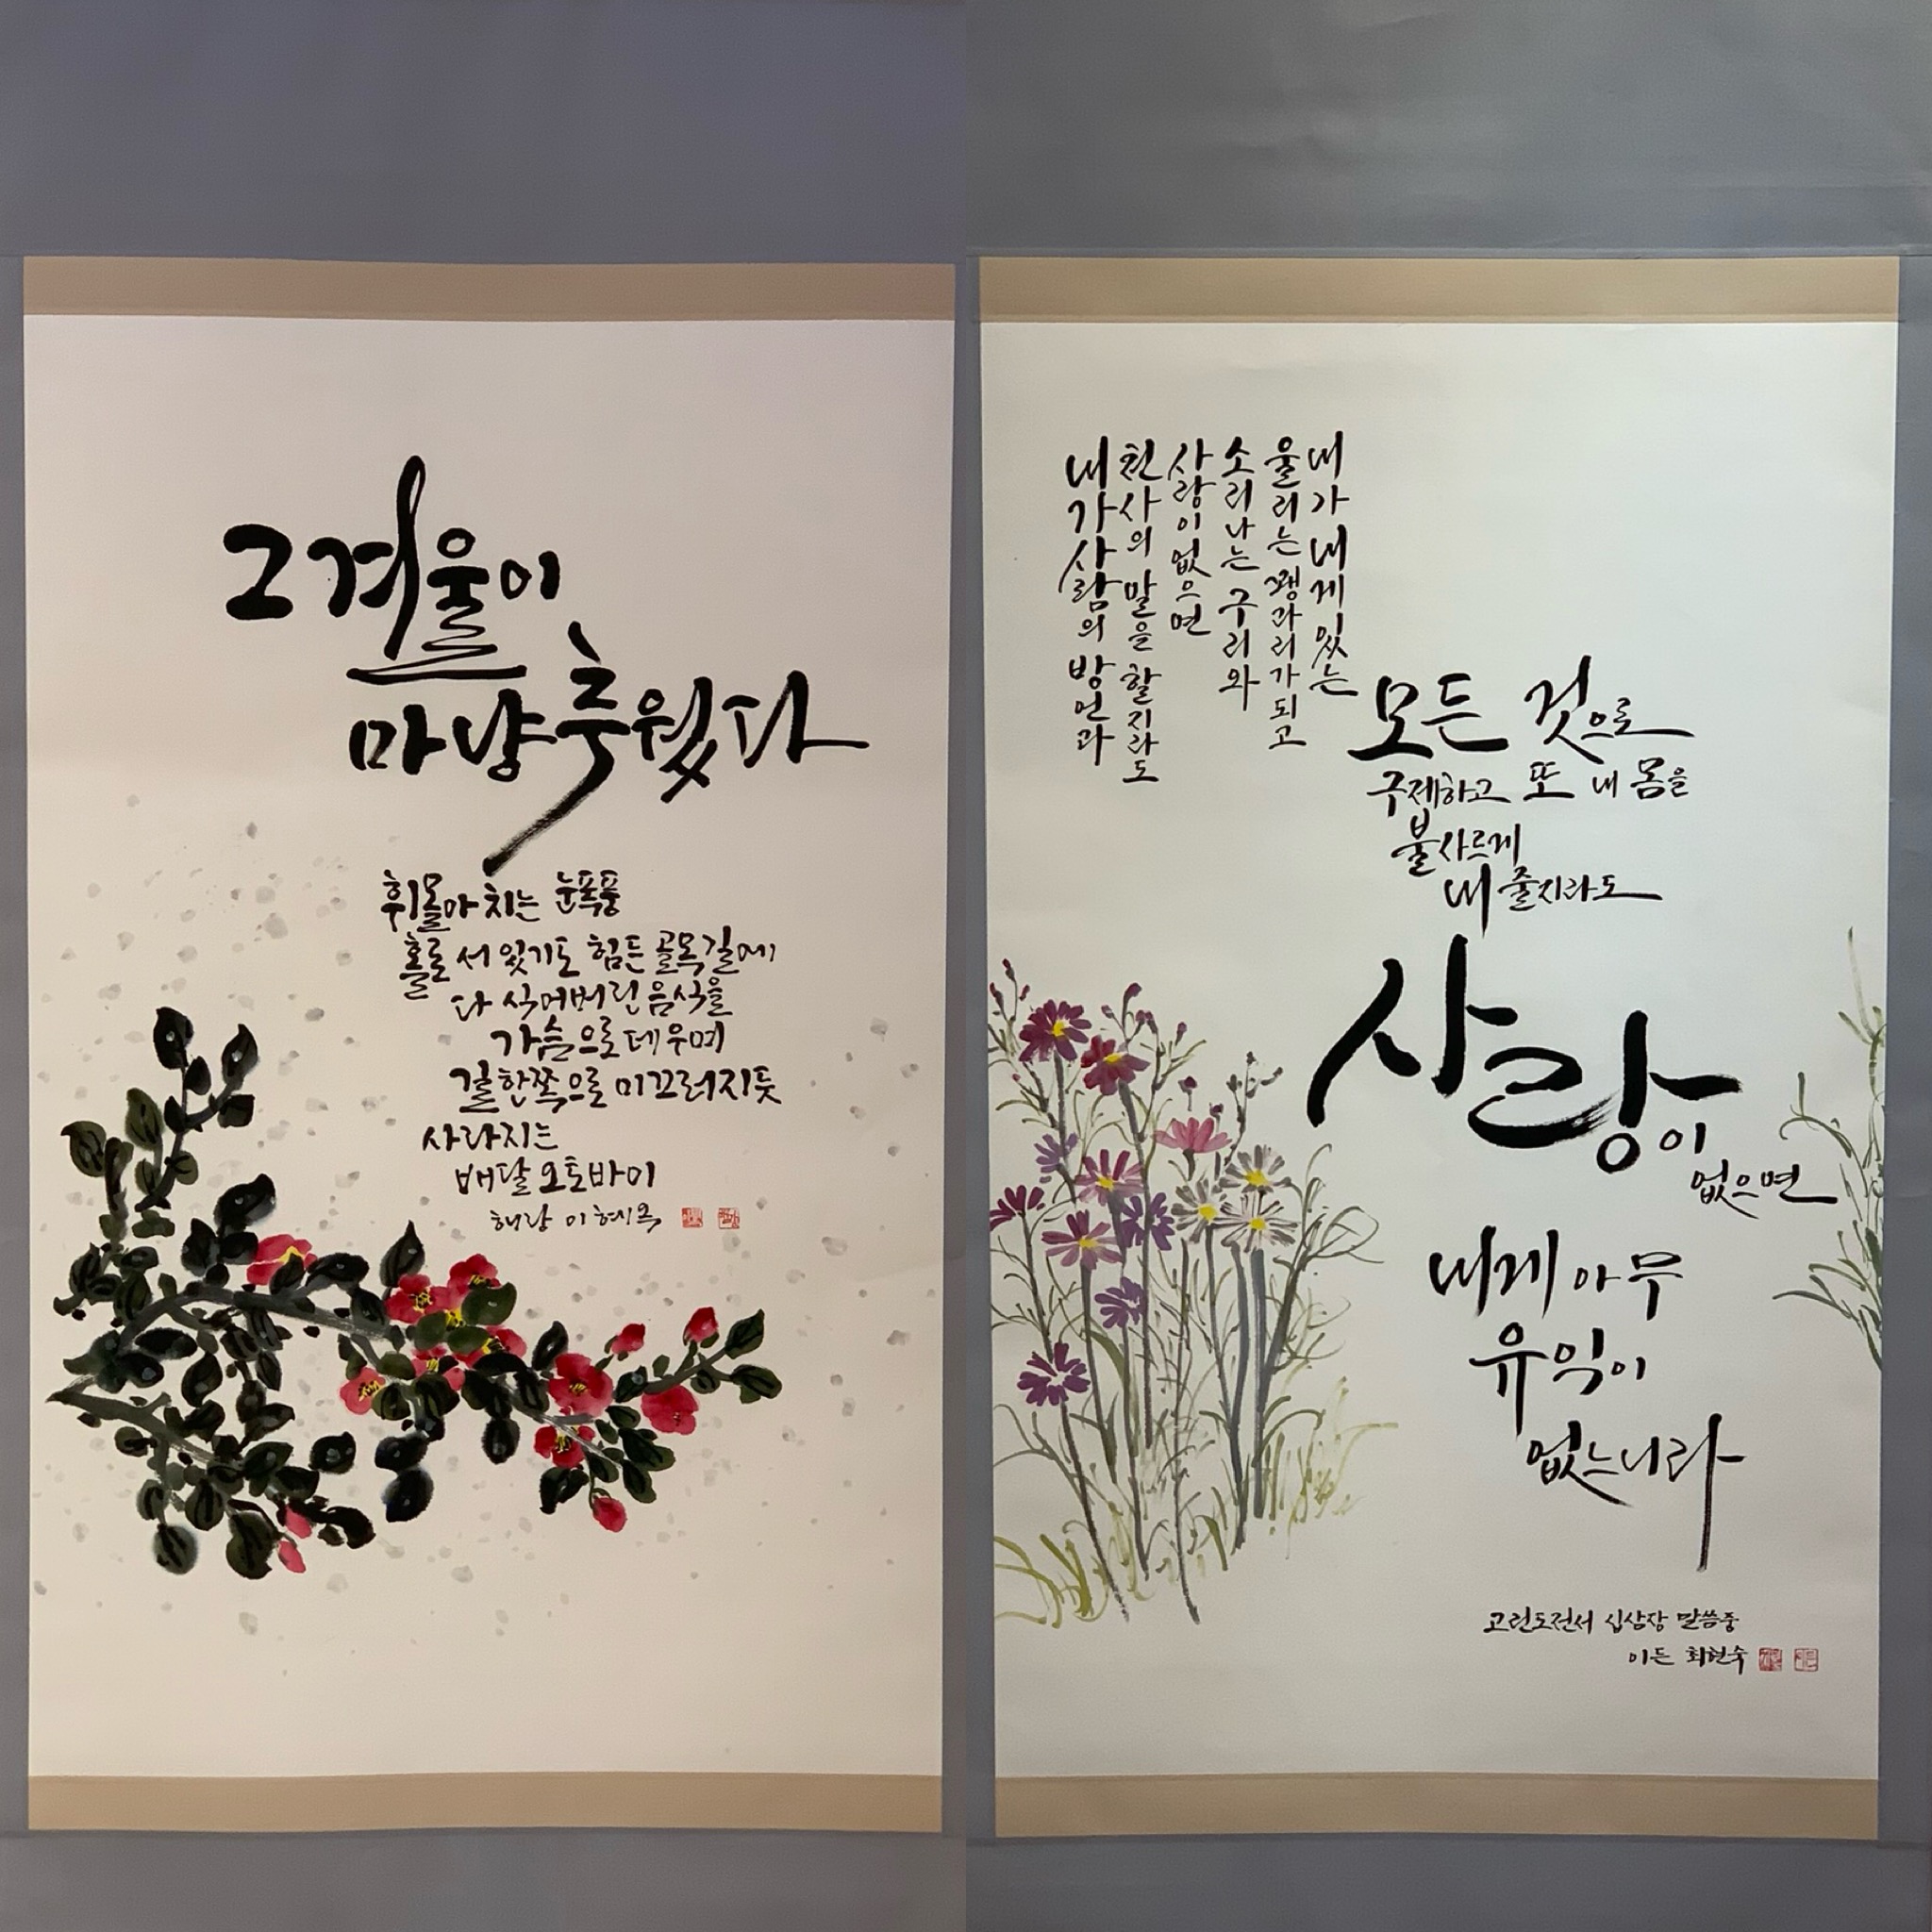 그 겨울이
마냥 추웠다
휘몰아 치는 눈폭풍
홀로 서 있기도 힘든 골목길에
다 식어버린 음식을
가슴으로 데우며
길 한쪽으로 미끄러지듯
사라지는
배달 오토바이
해랑 이혜옥
내가 사람의 방언과
천사의 말을 할지라도
사랑이 없으면
소리나는 구리와
울리는 꽹과리가 되고
내가 내게 있는
모든 것으로
구제하고 또 내 몸을
불사르게
내 줄지라도
사랑이
없으면
내게 아무
유익이
없느니라
고린도전서 십삼장 말씀중
이든 최현숙